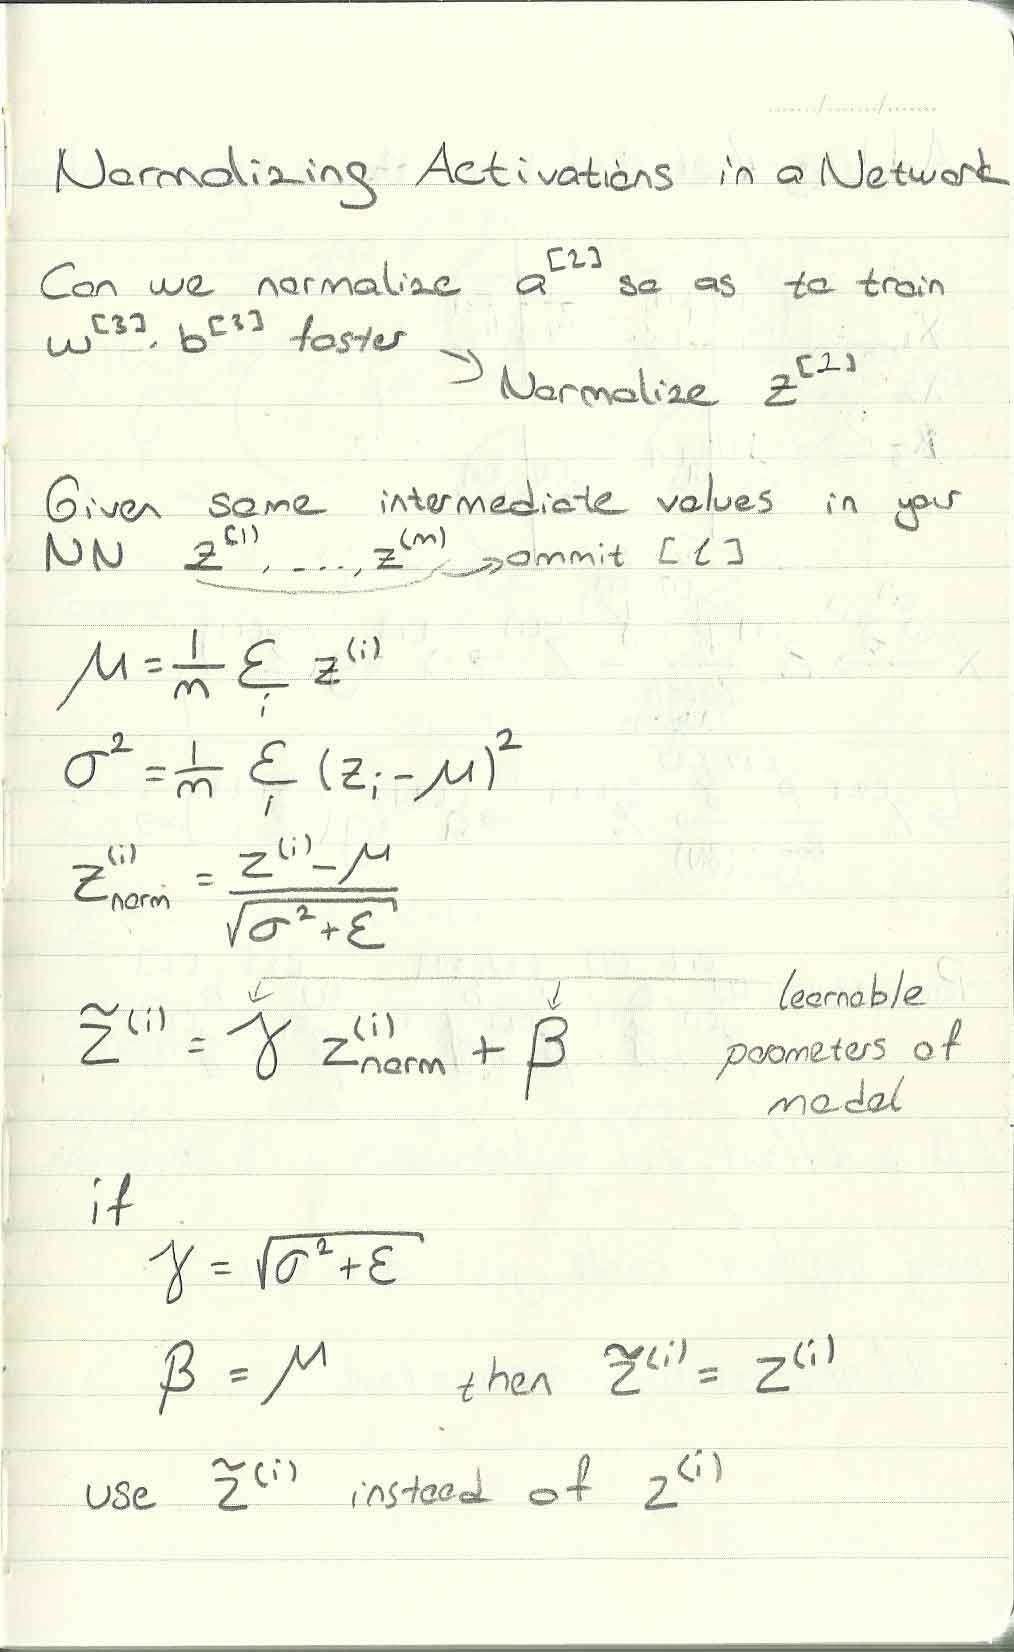 Normalizing Activations in a Network
Can we normalize a^[2] so as to train
w^[3], b^[3] faster
Normalize z^[2]
Given some intermediate values in your
NN z^(1), ...., z^(m) → ommit [l]
μ = 1/m Σ_i z^(i)
σ² = 1/m Σ_i (z_i - μ)²
z_norm^(i) = (z^(i) - μ) / √(σ² + ε)
z̃^(i) = γ z_norm^(i) + β
learnable
poometers of
model
if
γ = √(σ² + ε)
β = μ then z̃^(i) = z^(i)
use z̃^(i) instead of z^(i)